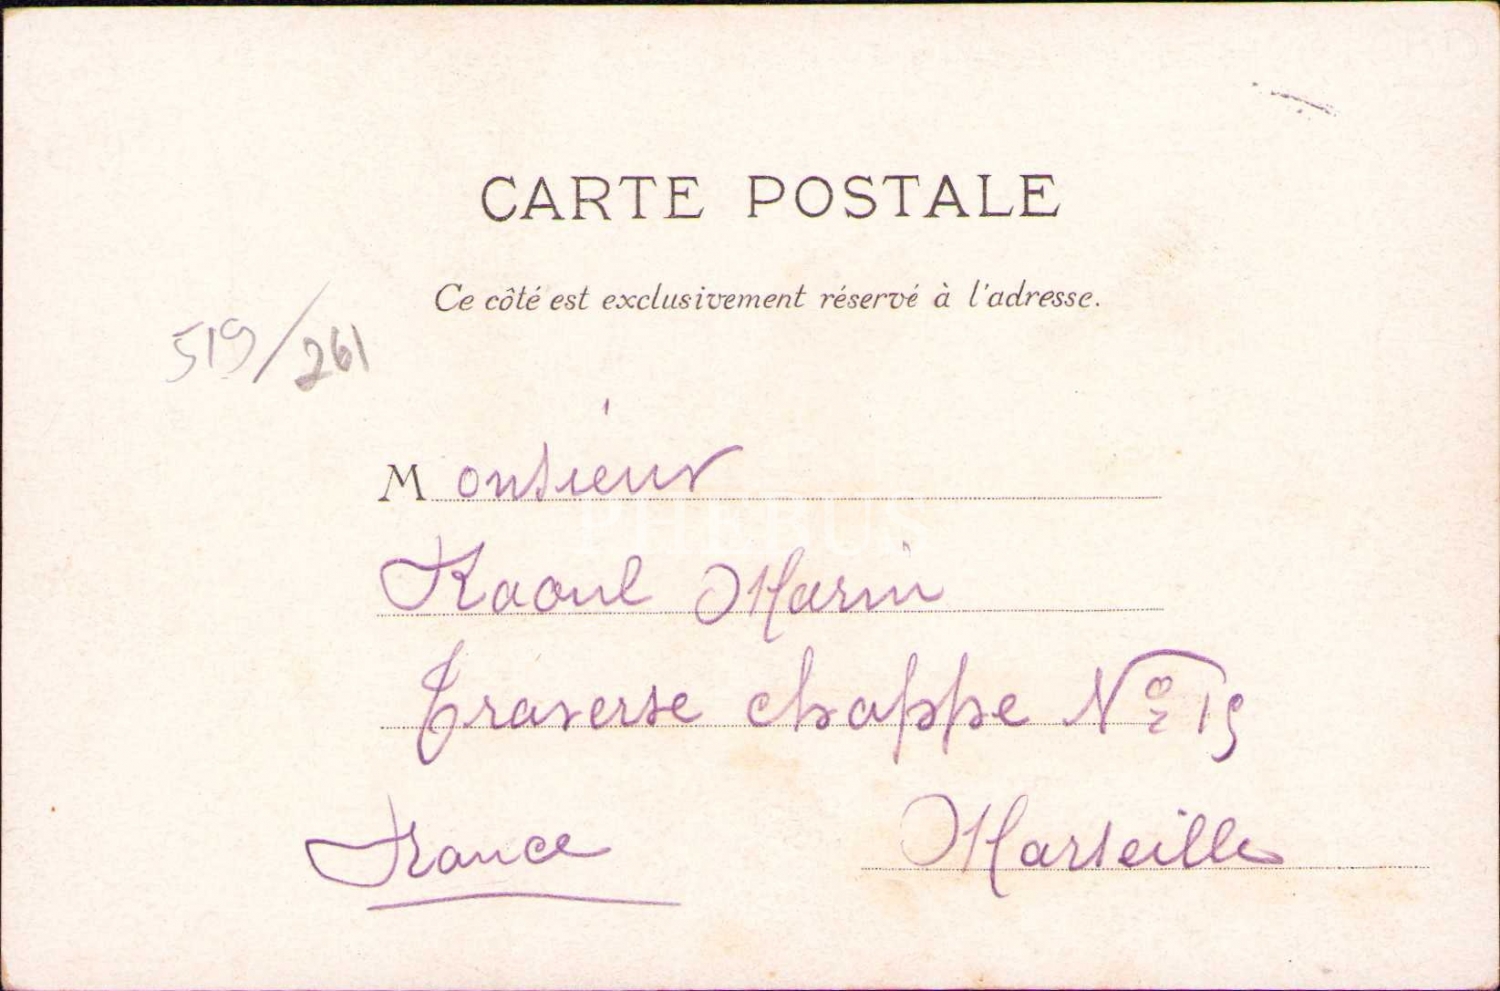 CARTE POSTALE
Ce côté est exclusivement réservé à l'adresse.
519/261
Monsieur
Raoul Marin
Traverse chappe Nº 19
Marseille
France
PHEBUS